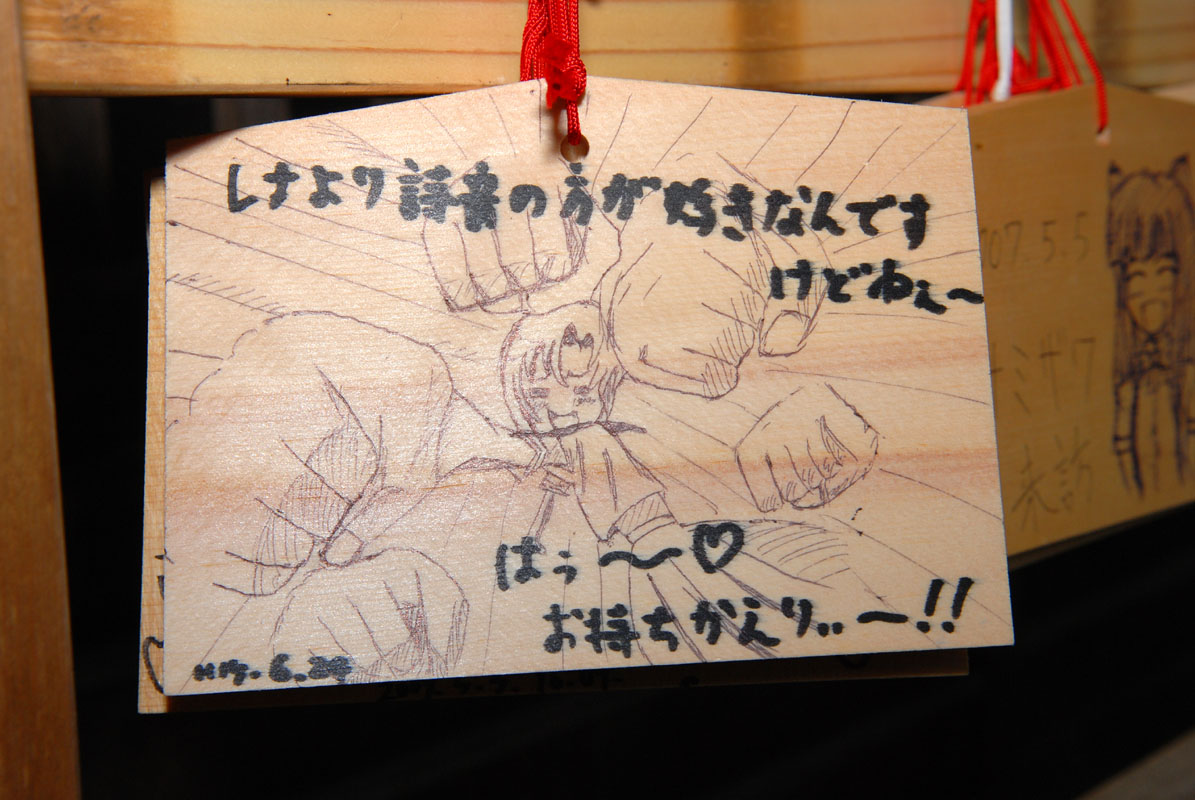 レナより詩音の方が好きなんです
けどねぇ〜
はぅ〜♡
お持ちかえりぃ〜!!
H19.6.29
07.5.5
ミザワ
来訪